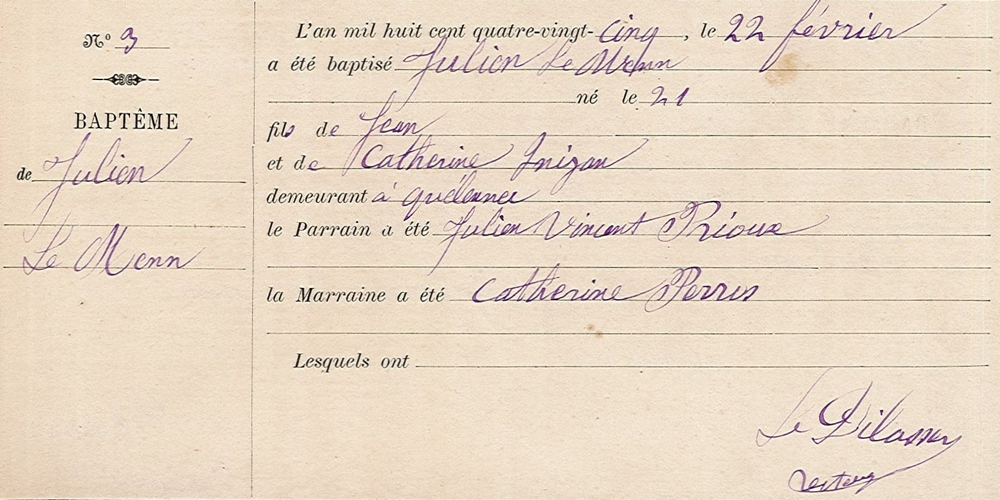 N° 3
BAPTÊME
de Julien
Le Menn
L'an mil huit cent quatre-vingt-cinq, le 22 février
a été baptisé Julien Le Menn
né le 21
fils de Jean
et de Catherine Inizan
demeurant à
le Parrain a été Julien Vincent Prioux
la Marraine a été Catherine Perros
Lesquels ont
Le
recteur